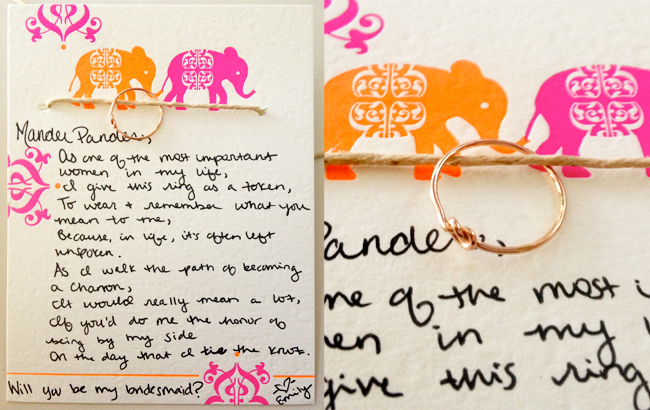 Mandee Pandee,
As one of the most important
women in my life,
I give this ring as a token,
To wear + remember what you
mean to me,
Because, in life, it's often left
unspoken.
As I walk the path of becoming
a chanon,
It would really mean a lot,
If you'd do me the honor of
being by my side
On the day that I tie the knot.
Will you be my bridesmaid?
Emily
Pandee,
ne of the most i
en in my l
give this ring